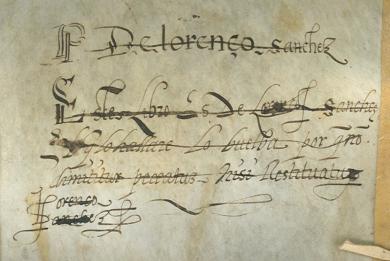 P De lorenço sanchez
Este libro es De Lorenço sanchez
quien lo hallare lo buelba por q̃ no
dimititur pecatus nisi Restituatur
Lorenço
sanchez